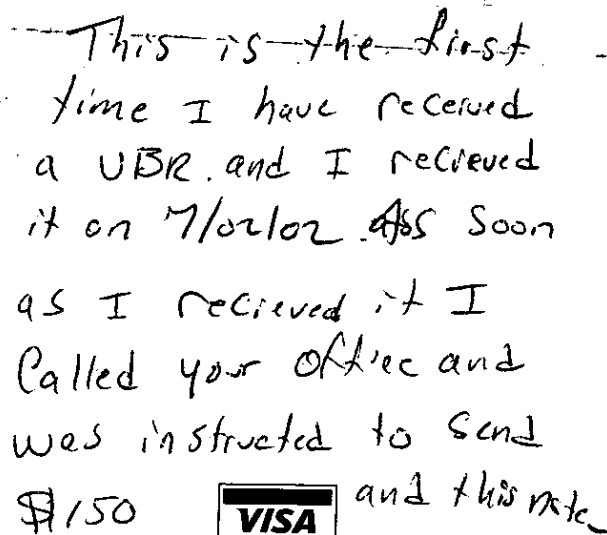 This is the first
time I have received
a UBR. and I recieved
it on 7/02/02. As soon
as I recieved it I
Called your office and
was instructed to send
$150 VISA and this note